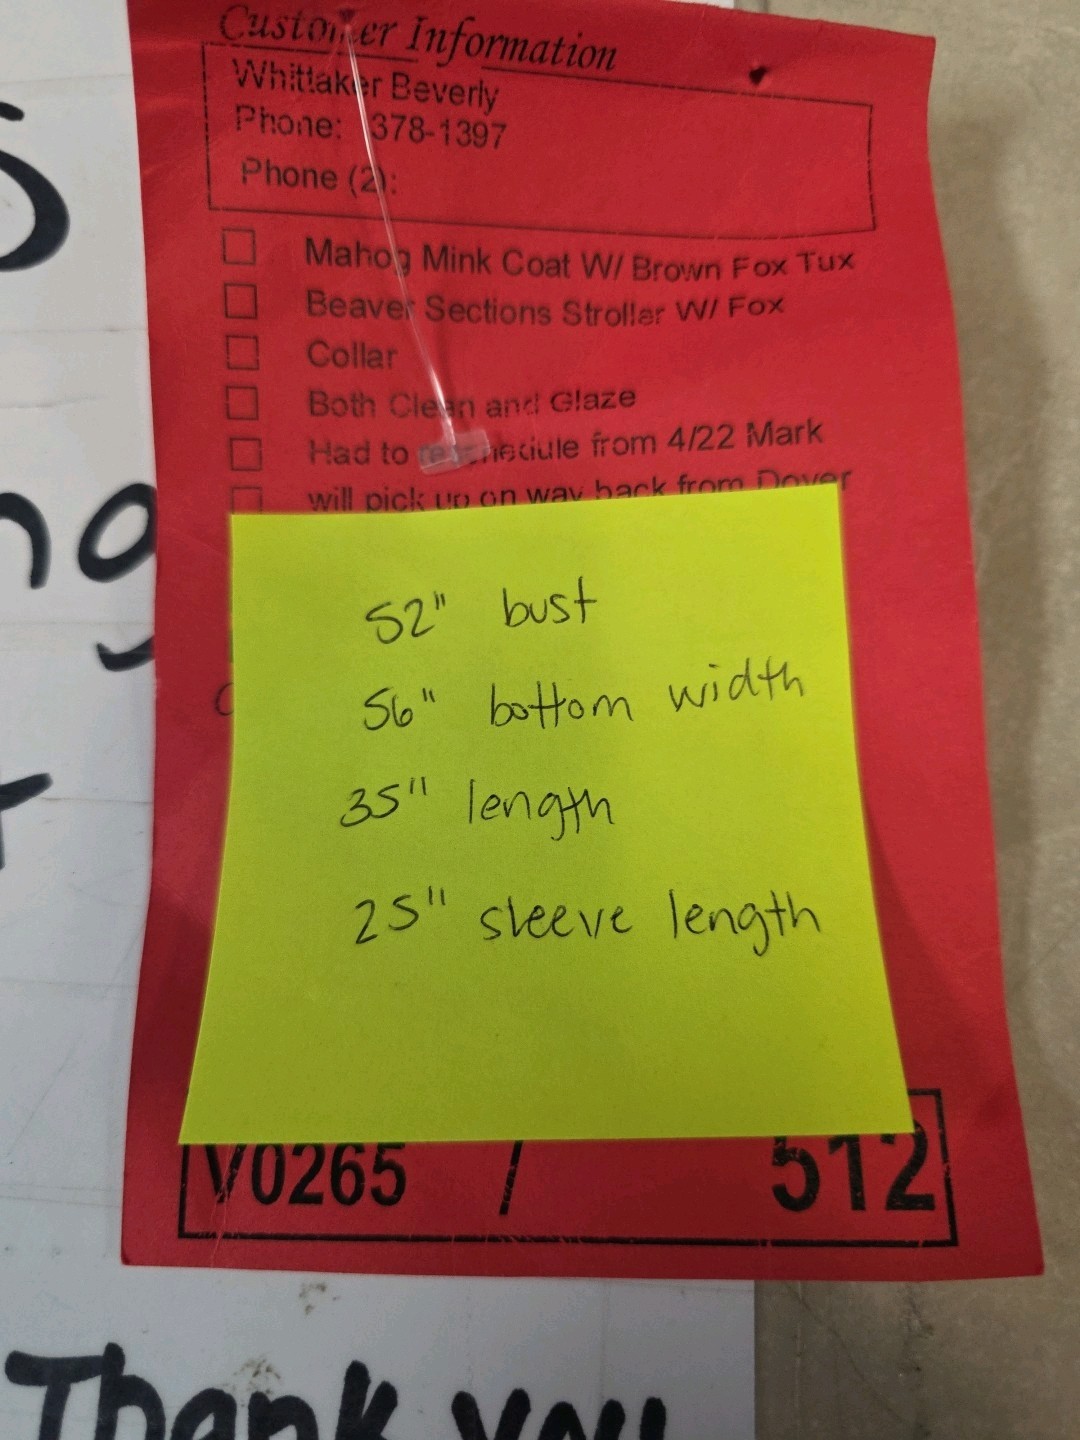 Customer Information
Whittaker Beverly
Phone: 378-1397
Phone (2):
Mahog Mink Coat W/ Brown Fox Tux
Beaver Sections Stroller W/ Fox
Collar
Both Clean and Glaze
Had to reschedule from 4/22 Mark
will pick up on way back from Dover
52" bust
56" bottom width
35" length
25" sleeve length
V0265 / 512
Thank you